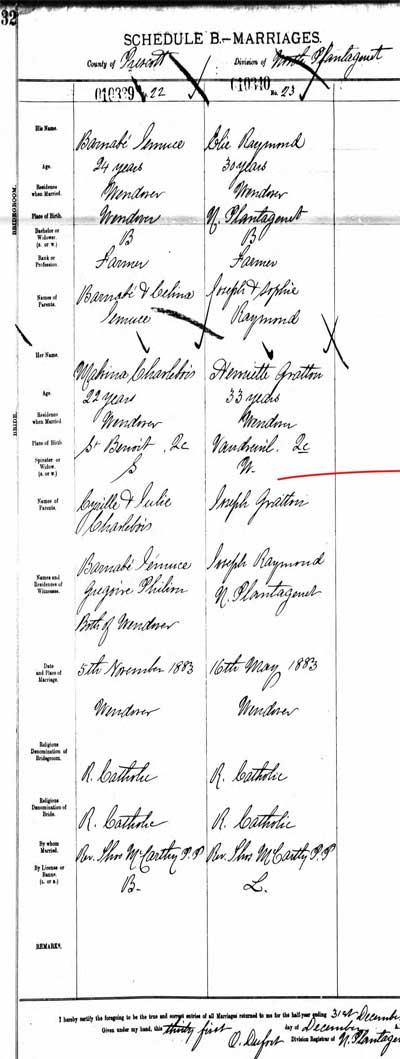 32
SCHEDULE B.—MARRIAGES.
County of Prescott Division of North Plantagenet
010339 No. 22 010340 No. 23
BRIDEGROOM.
His Name. Barnabé Elie Raymond
Age. 24 years 30 years
Residence when Married. Wendover Wendover
Place of Birth. Wendover N. Plantagenet
Bachelor or Widower. (B. or W.) B B
Rank or Profession. Farmer Farmer
Names of Parents. Barnabé & Celina Joseph & Sophie
Raymond
BRIDE.
Her Name. Charlebois Henriette Gratton
Age. 22 years 33 years
Residence when Married. Wendover Wendover
Place of Birth St Benoit, Qc Vaudreuil. Qc
Spinster or Widow. (S. or W.) S W.
Names of Parents. Cyrille & Julie Joseph Gratton
Charlebois
Names and Residences of Witnesses. Barnabé Joseph Raymond
Gregoire Philion N. Plantagenet
Both of Wendover
Date and Place of Marriage. 5th November 1883 16th May 1883
Wendover Wendover
Religious Denomination of Bridegroom. R. Catholic R. Catholic
Religious Denomination of Bride. R. Catholic R. Catholic
By whom Married. Rev. Thos McCarthy P.P Rev. Thos McCarthy P.P
By License or Banns. (L. or B.) B- L.
REMARKS.
I hereby certify the foregoing to be the true and correct entries of all Marriages returned to me for the half-year ending 31st December
Given under my hand, this thirty first day of December
O. Dufort Division Registrar of N. Plantagen